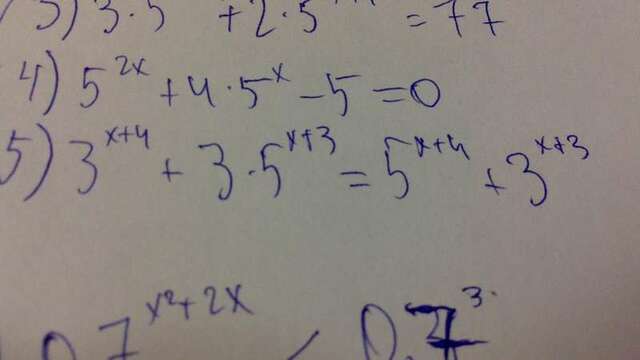 3) 3·5 + 2·5 = 77
4) 5^{2x} + 4·5^x - 5 = 0
5) 3^{x+4} + 3·5^{x+3} = 5^{x+4} + 3^{x+3}
0,7^{x²+2x} < 0,7^3